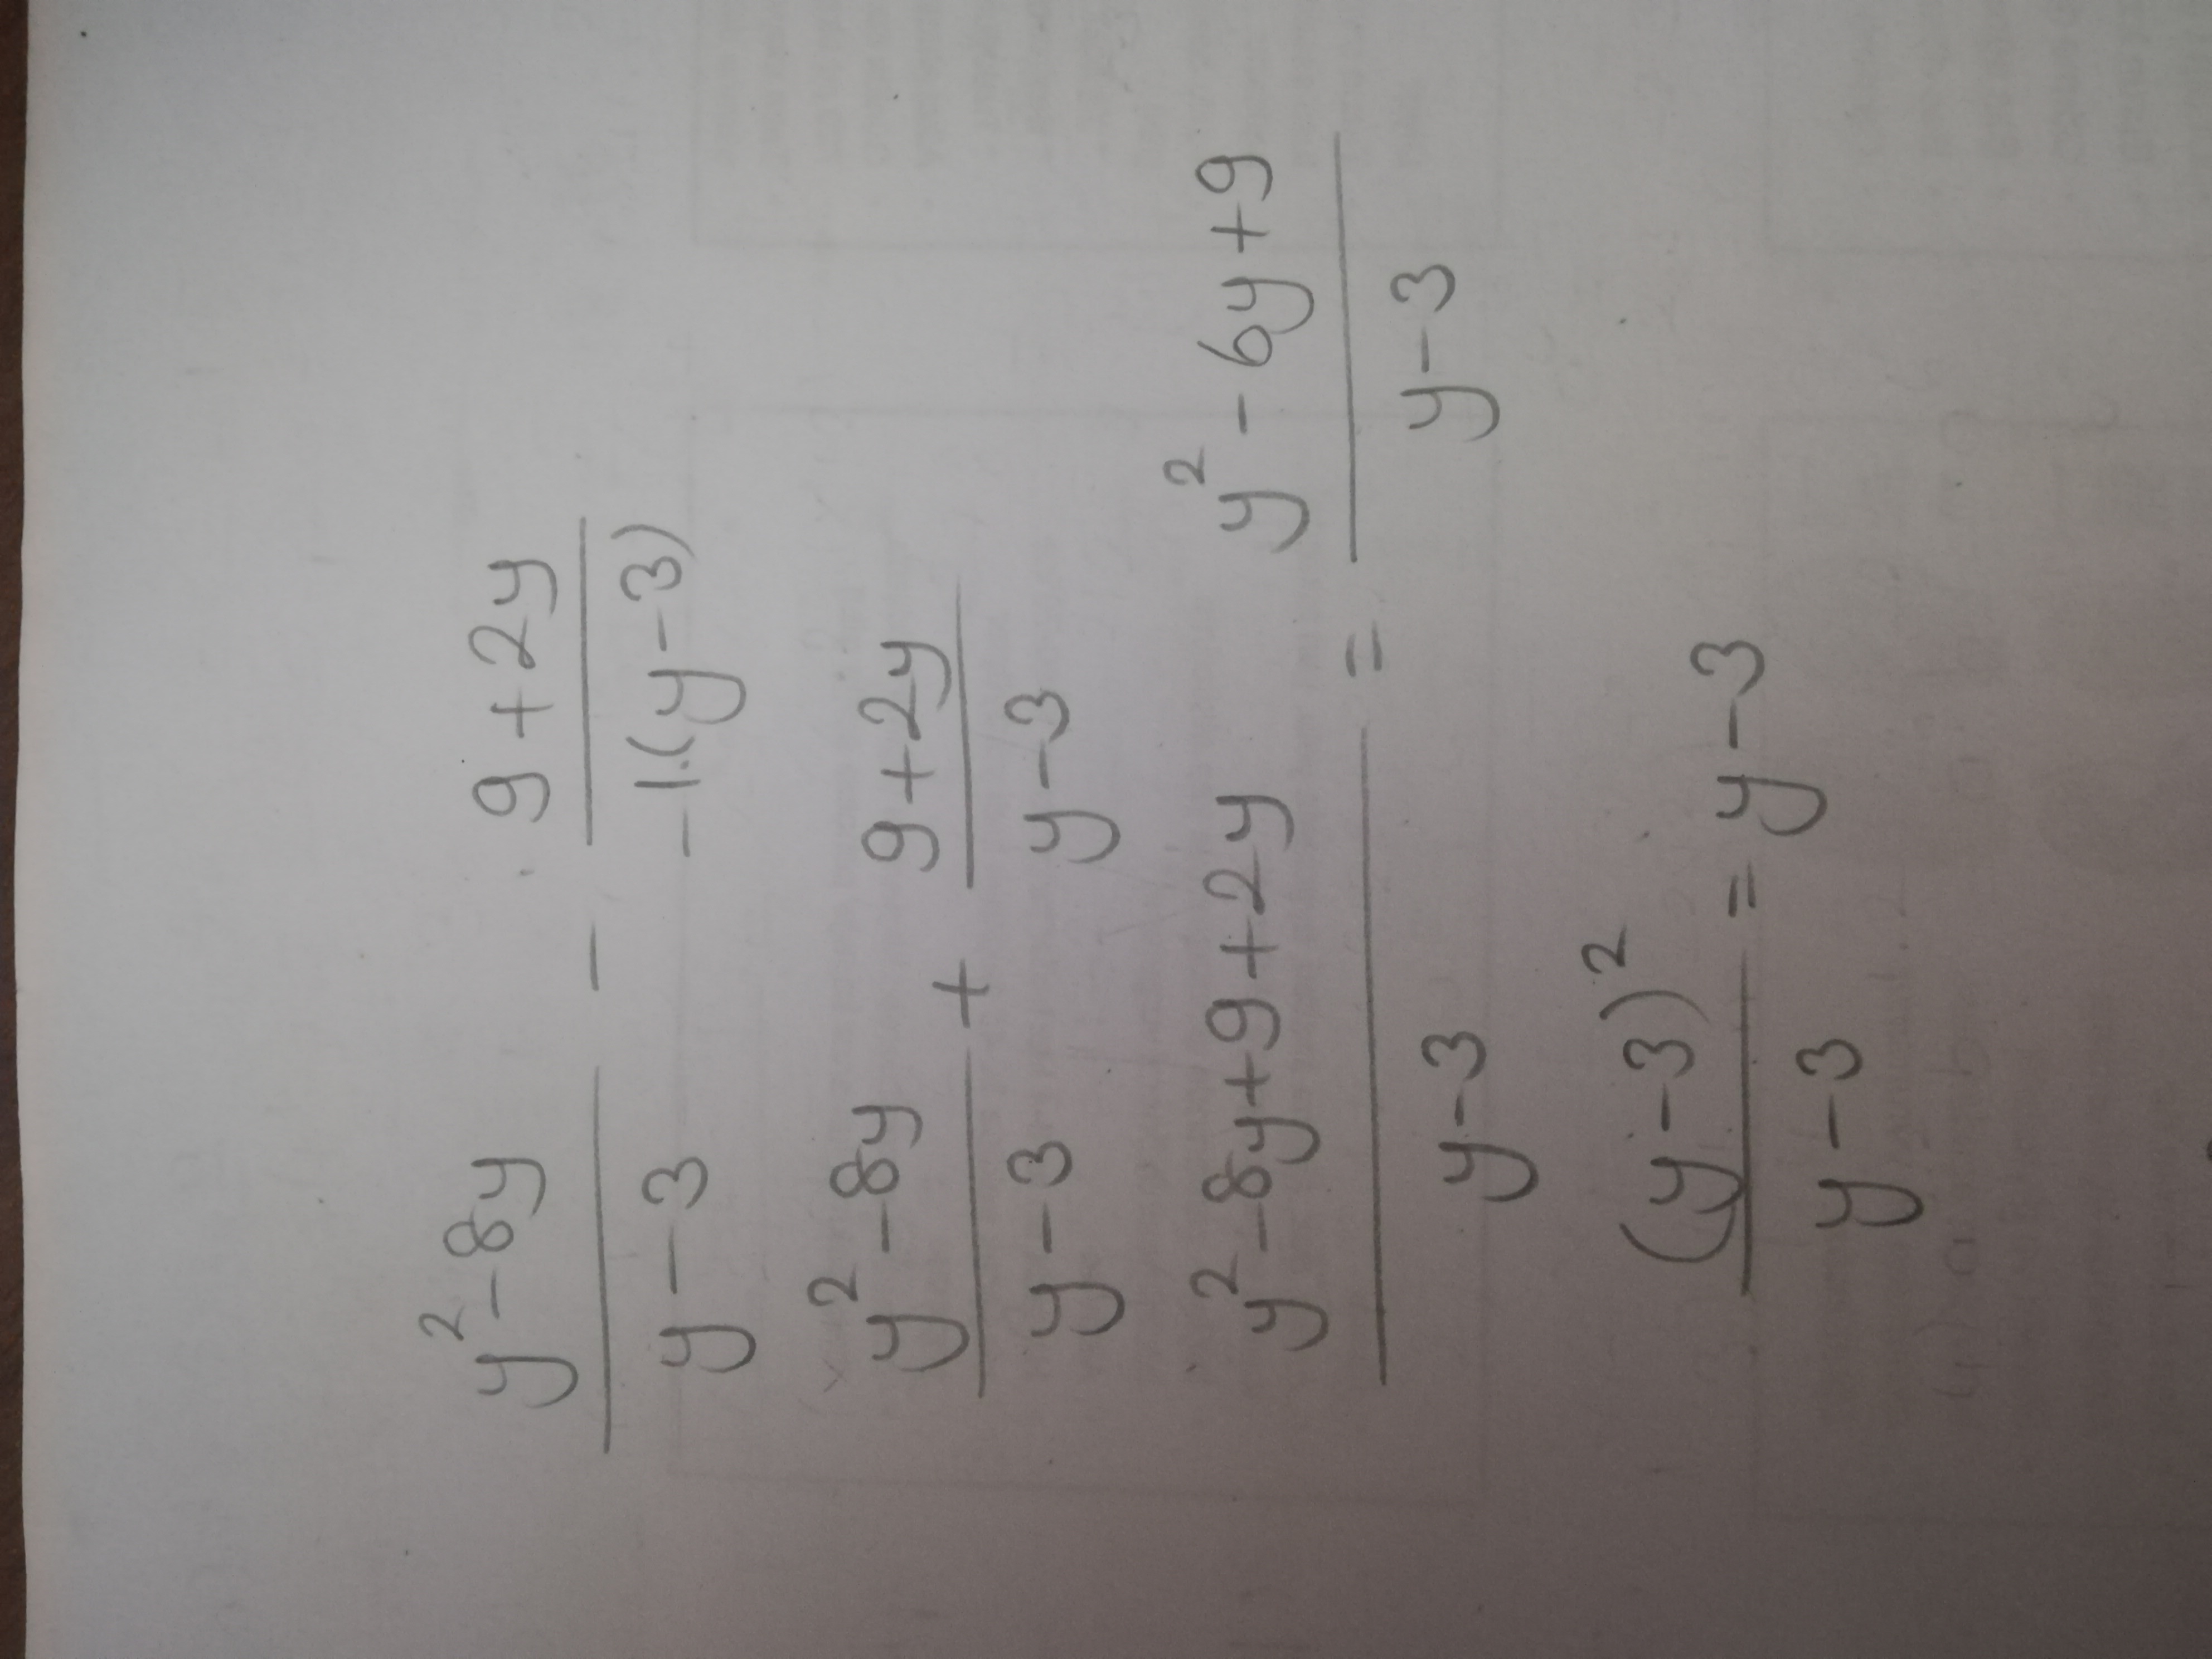 y² - 8y / y - 3 - 9 + 2y / -1·(y - 3)
y² - 8y / y - 3 + 9 + 2y / y - 3
y² - 8y + 9 + 2y / y - 3 = y² - 6y + 9 / y - 3
(y - 3)² / y - 3 = y - 3